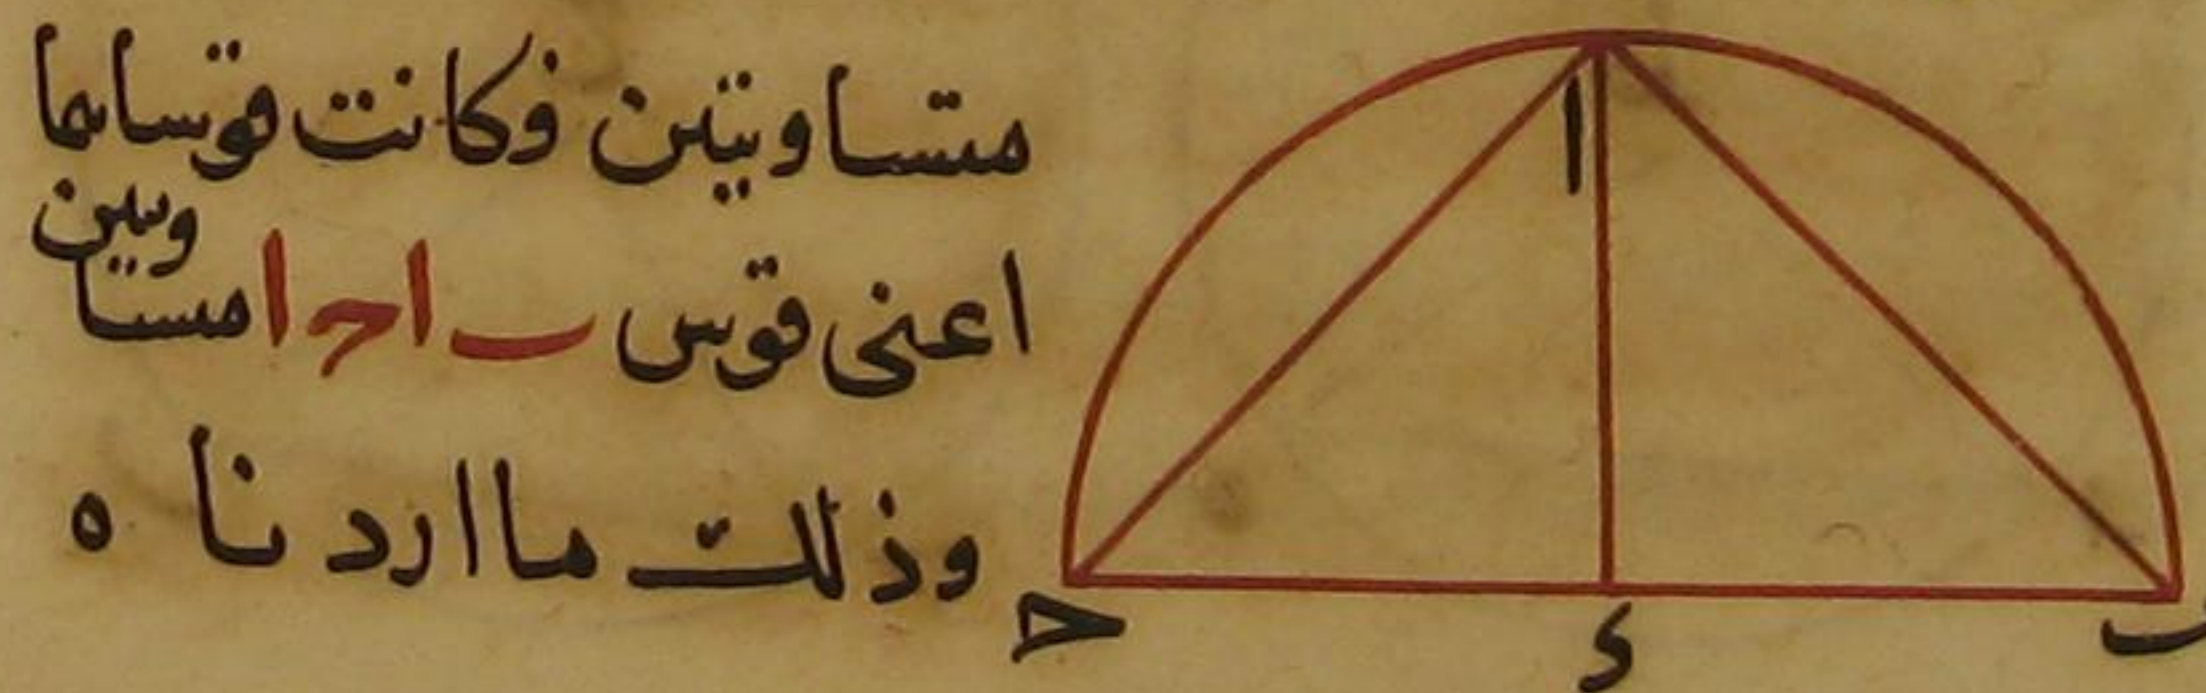 متساويتين فكانت قوساهما
اعنى قوس ٮا حا متساويين
وذلك ما اردنا ه
ا
ح
د
ٮ